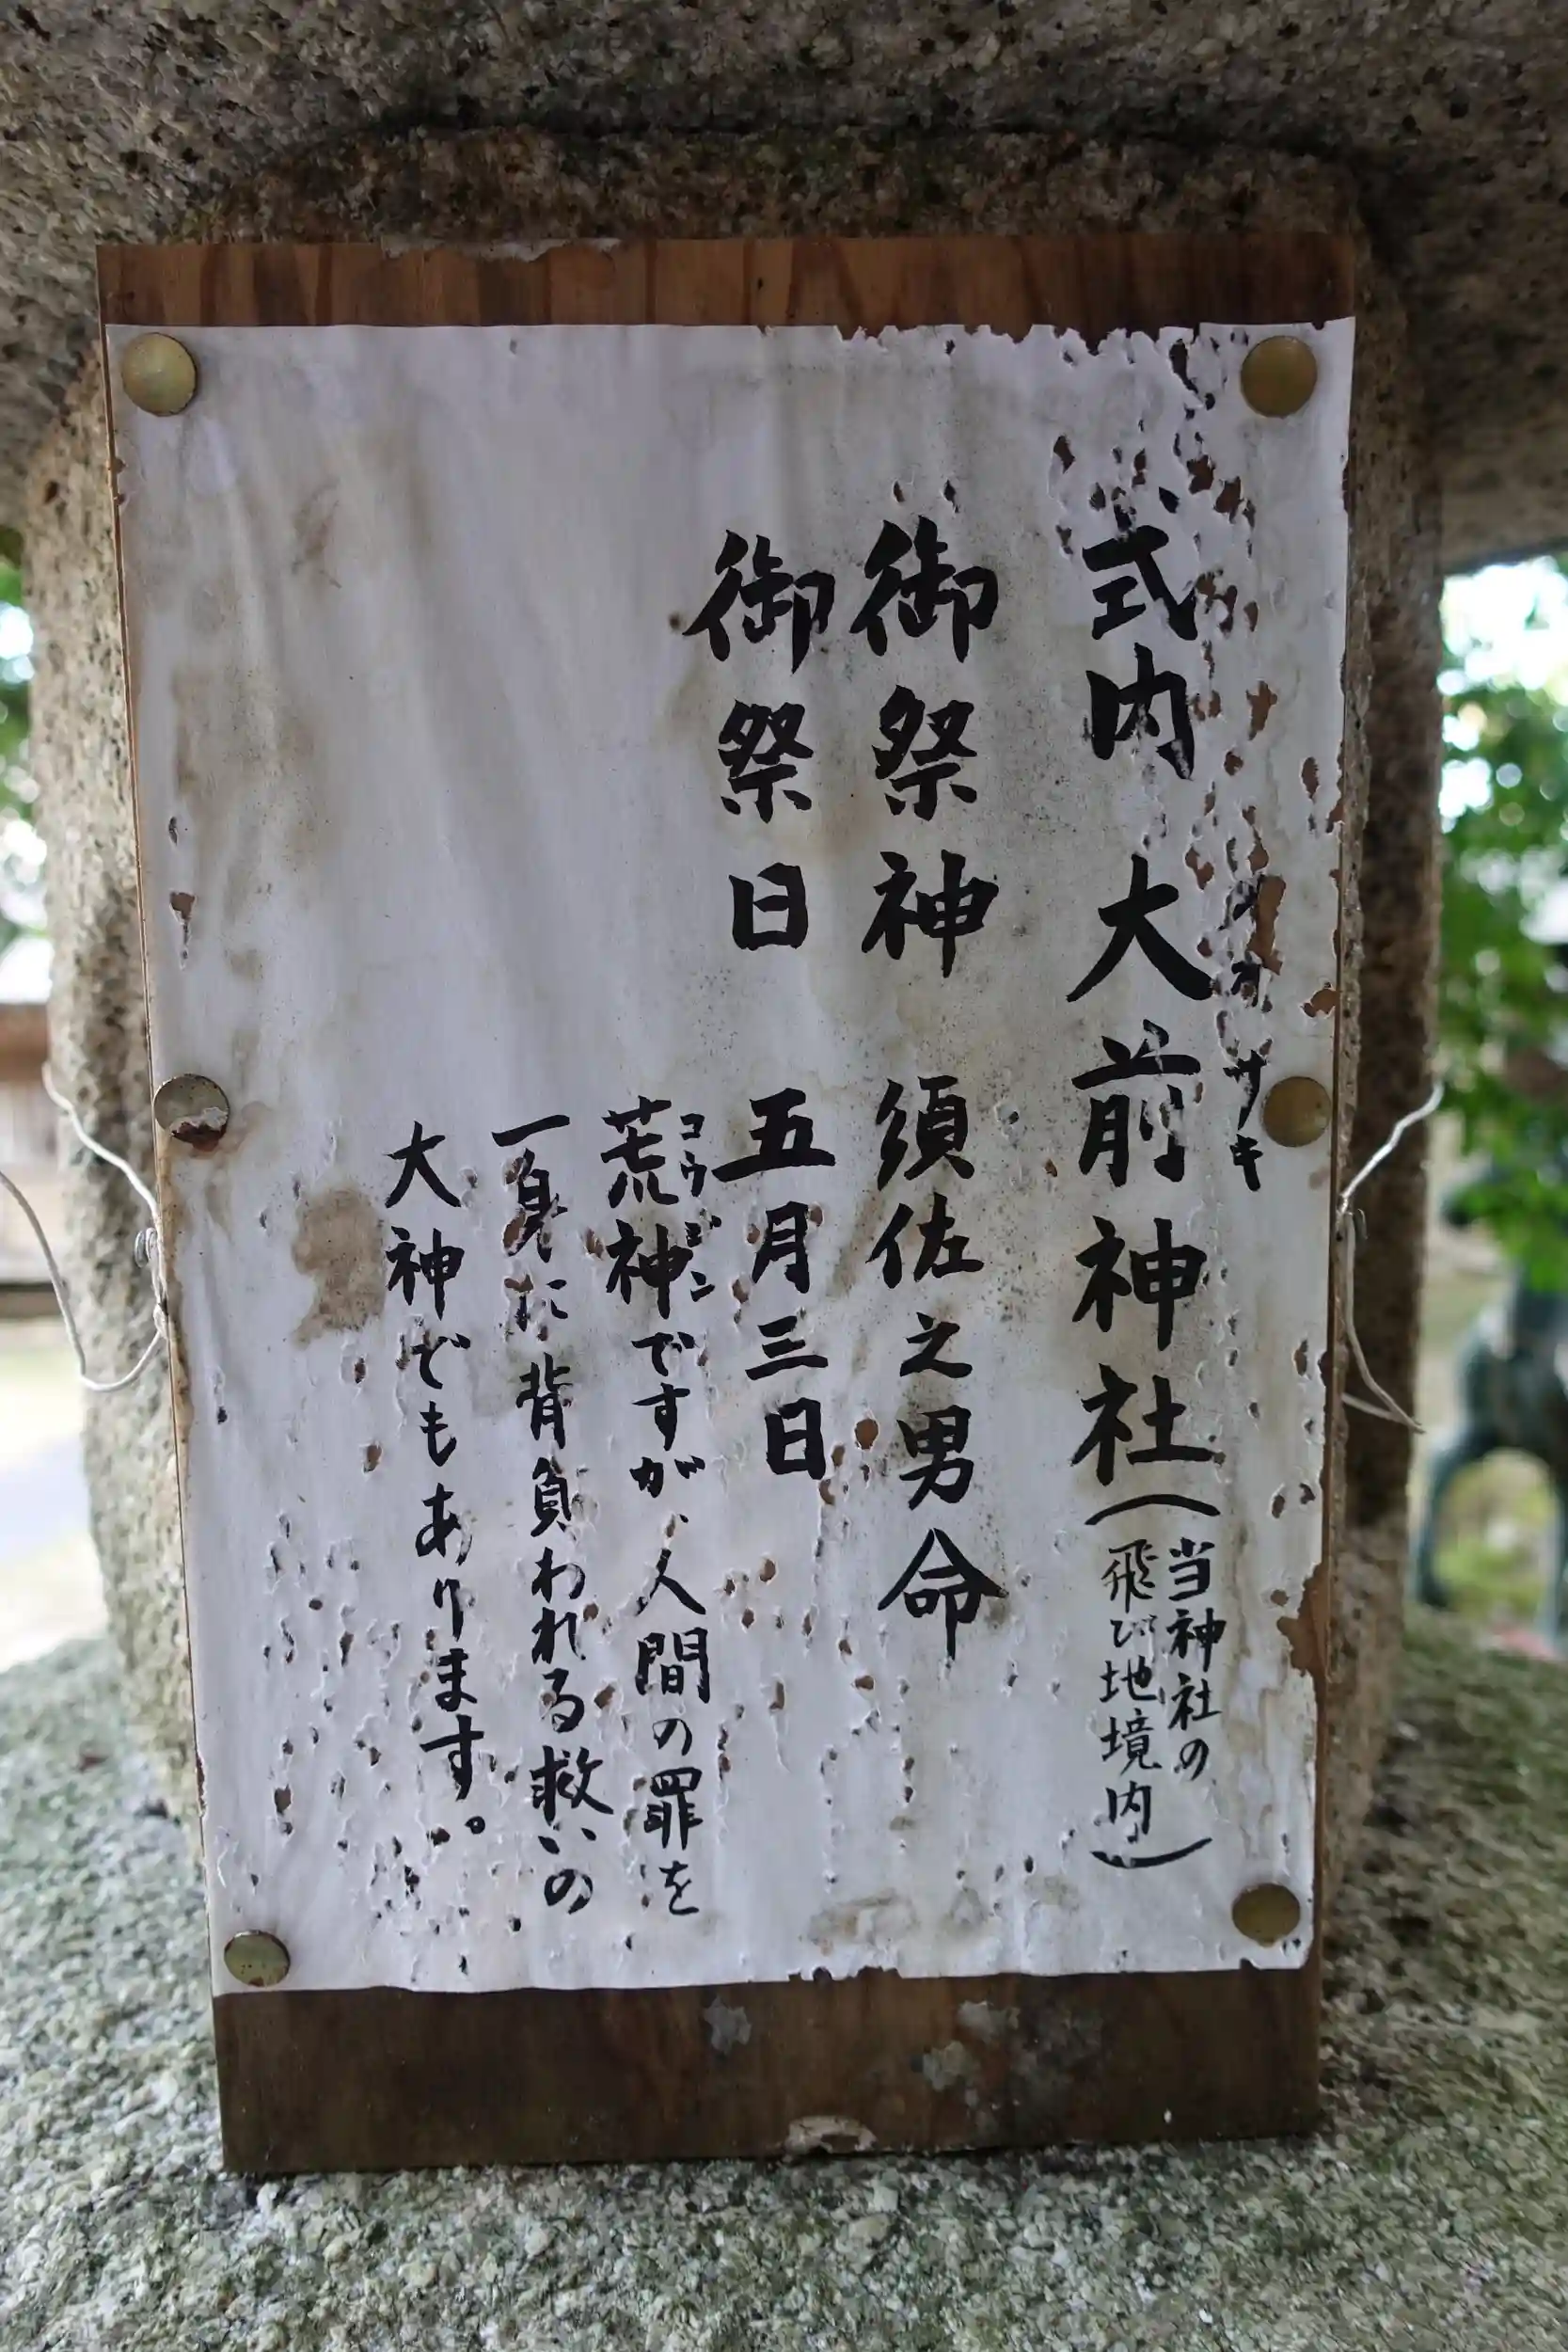 式内 大前神社(当神社の
飛び地境内)
オオサキ
御祭神 須佐之男命
御祭日 五月三日
コウジン
荒神ですが、人間の罪を
一身に背負われる救いの
大神でもあります。